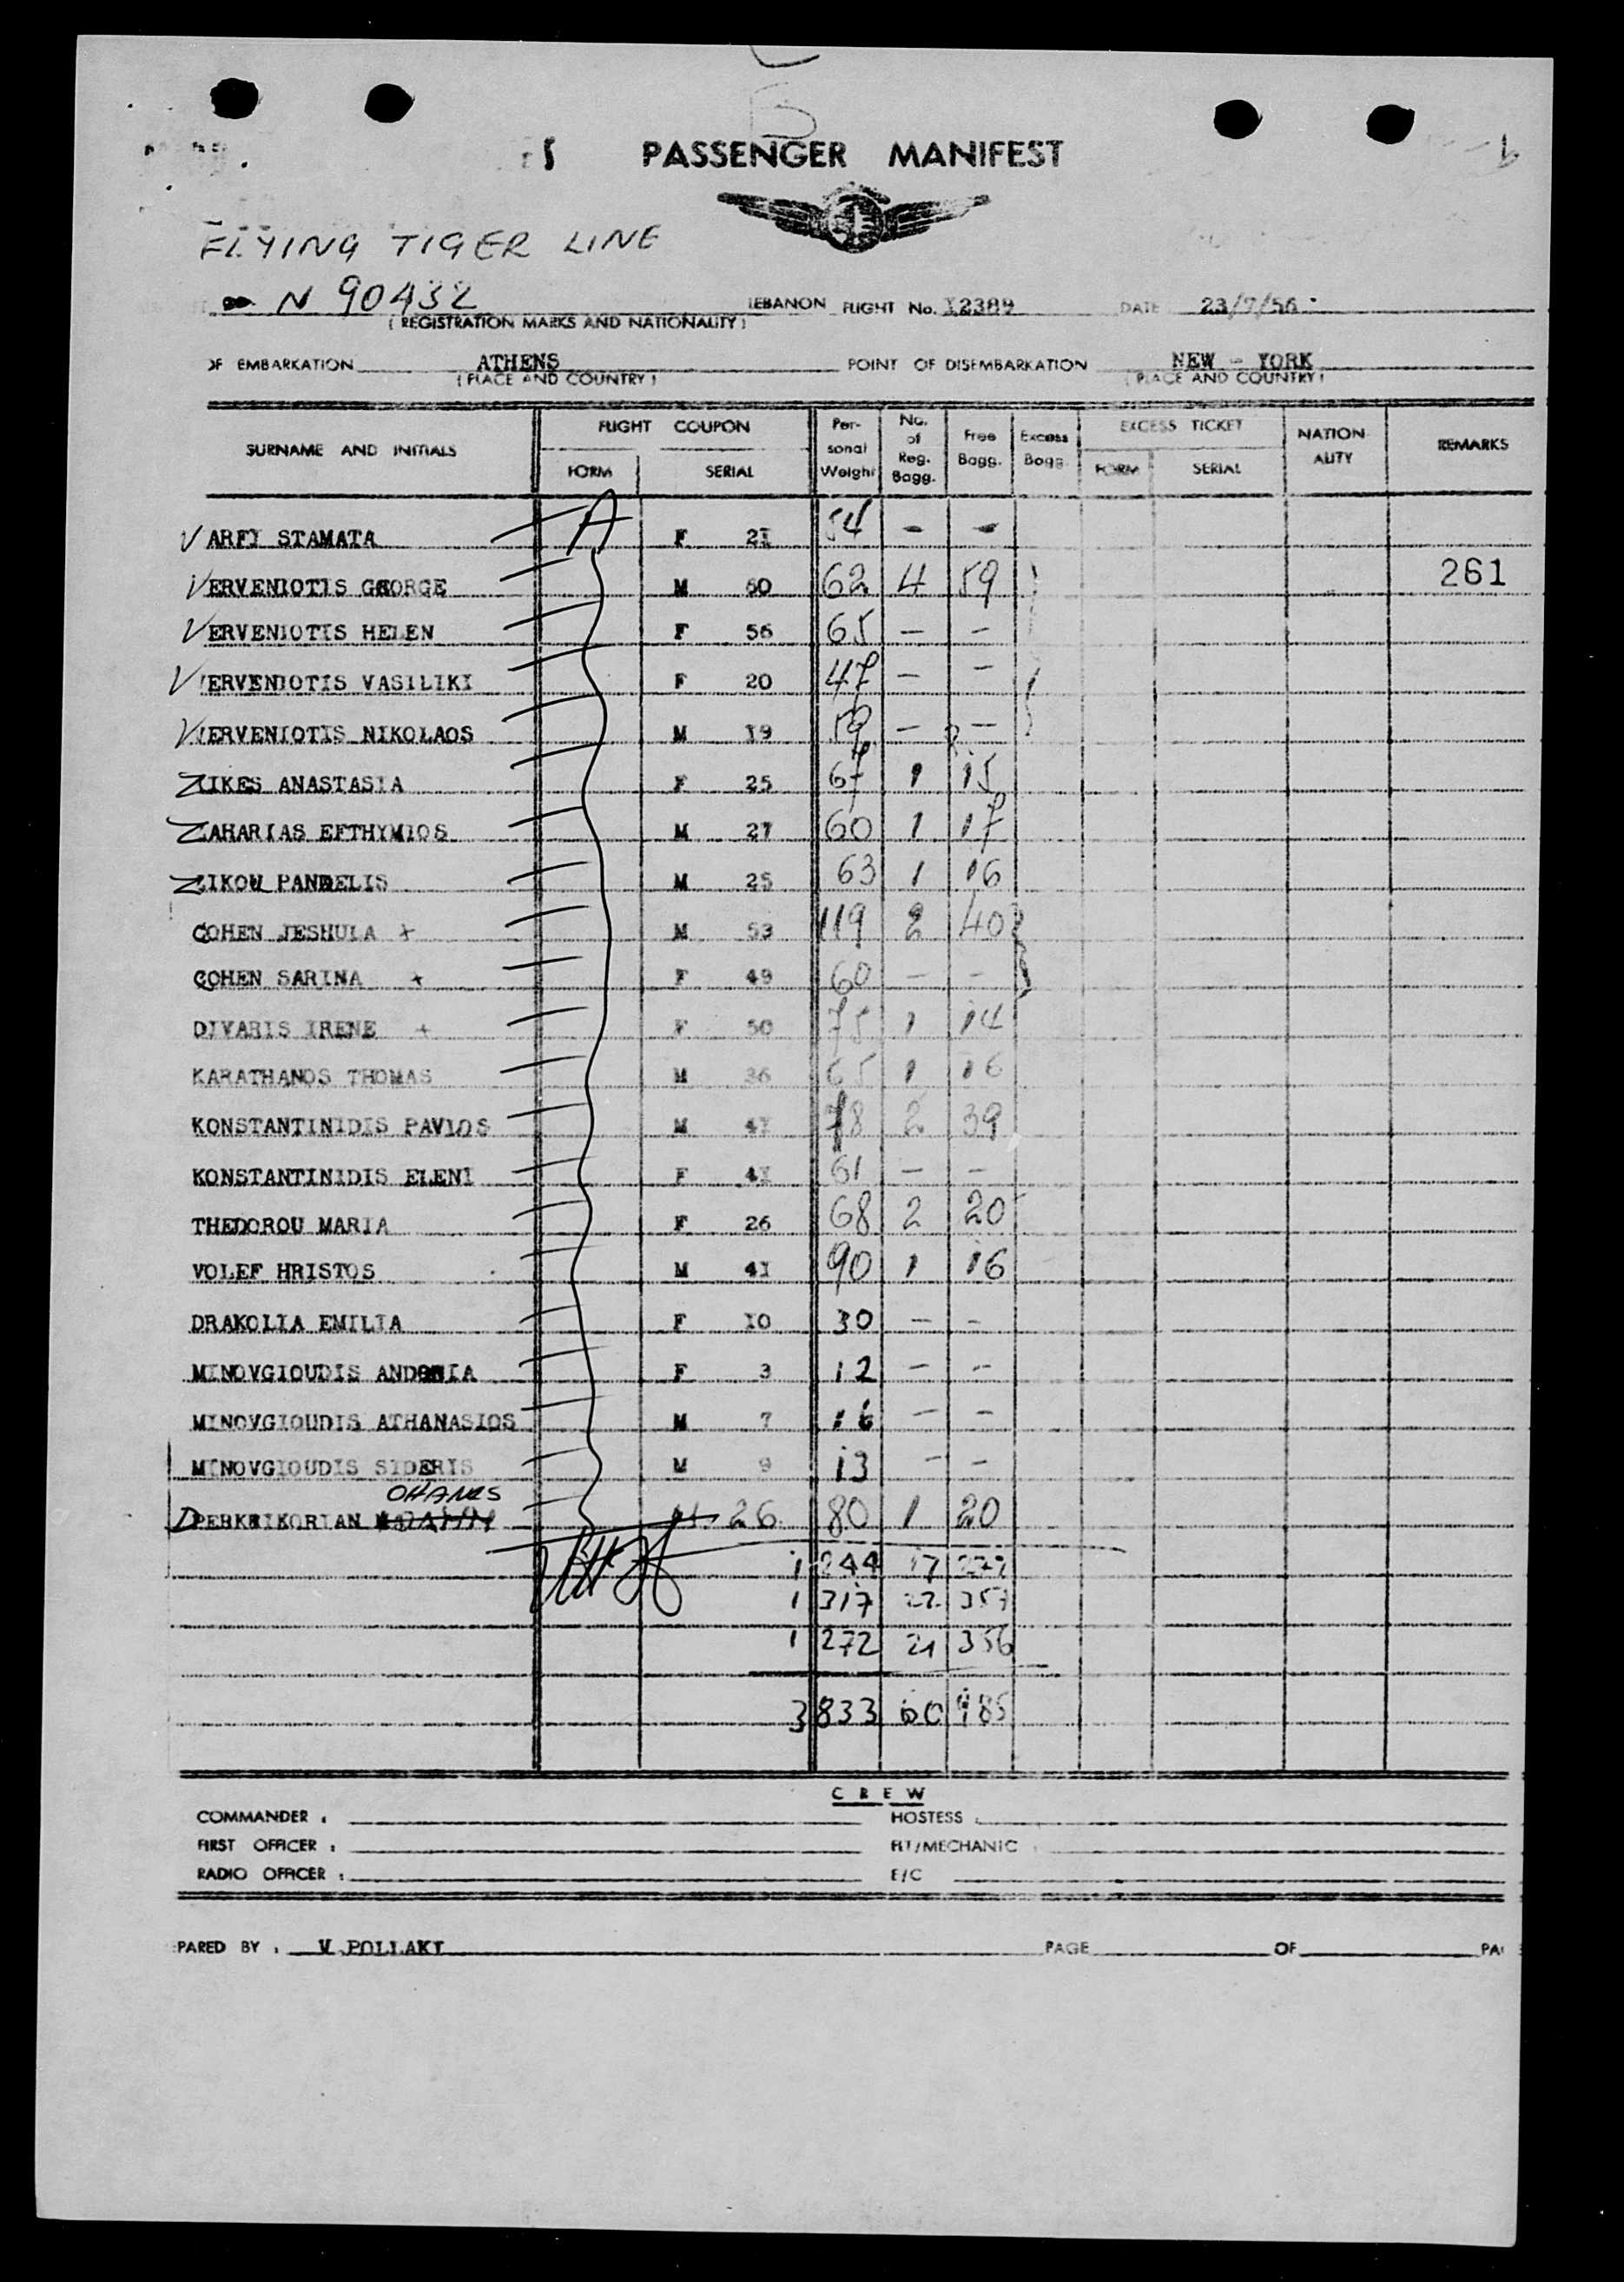 PASSENGER MANIFEST
FLYING TIGER LINE
N 90432 LEBANON FLIGHT No. I2389 DATE 23/7/56
( REGISTRATION MARKS AND NATIONALITY )
OF EMBARKATION ATHENS POINT OF DISEMBARKATION NEW - YORK
( PLACE AND COUNTRY ) ( PLACE AND COUNTRY )
SURNAME AND INITIALS FLIGHT COUPON FORM SERIAL Personal Weight No. of Reg. Bagg. Free Bagg. Excess Bagg. EXCESS TICKET FORM SERIAL NATIONALITY REMARKS
VARFI STAMATA F 2I 54 - -
VERVENIOTIS GEORGE M 60 62 4 59 261
VERVENIOTIS HELEN F 56 65 - -
VERVENIOTIS VASILIKI F 20 47 - -
VERVENIOTIS NIKOLAOS M I9 59 - -
ZIKES ANASTASIA F 25 67 1 15
ZAHARIAS EFTHYMIOS M 27 60 1 17
ZIKOU PANDELIS M 25 63 1 16
COHEN JESHULA + M 53 119 2 40
COHEN SARINA + F 49 60 - -
DIVARIS IRENE + F 50 75 1 14
KARATHANOS THOMAS M 36 65 1 16
KONSTANTINIDIS PAVLOS M 4I 78 2 39
KONSTANTINIDIS ELENI F 4I 61 - -
THEDOROU MARIA F 26 68 2 20
VOLEF HRISTOS M 4I 90 1 16
DRAKOLIA EMILIA F I0 30 - -
MINOVGIOUDIS ANDONIA F 3 12 - -
MINOVGIOUDIS ATHANASIOS M 7 16 - -
MINOVGIOUDIS SIDERIS M 9 13 - -
OHANES
DPERKRIKORIAN M 26 80 1 20
1 244 17 272
1 317 22 357
1 272 21 356
3 833 60 985
CREW
COMMANDER : HOSTESS :
FIRST OFFICER : FLT/MECHANIC :
RADIO OFFICER : F/C
PARED BY : V.POLLAKI PAGE OF PA